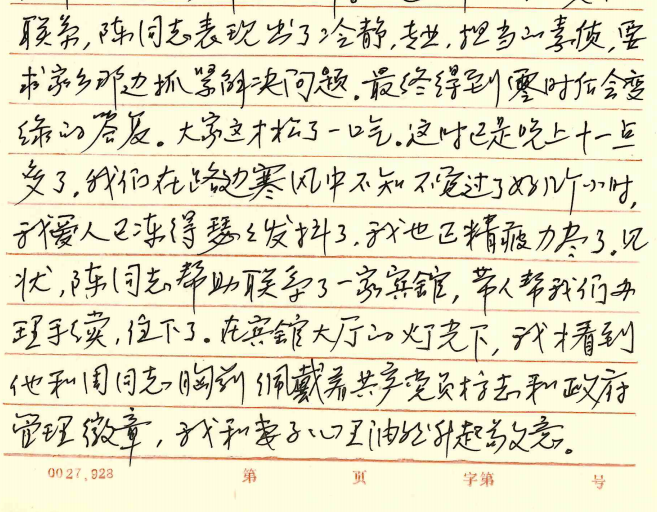 联系,陈同志表现出了冷静,专业,担当的素质,要
求家乡那边抓紧解决问题。最终得到零时后会变
绿的答复。大家这才松了一口气。这时已是晚上十一点
多了,我们在路边寒风中不知不觉过了好几个小时,
我爱人已冻得瑟瑟发抖了,我也已精疲力尽了。见
状,陈同志帮助联系了一家宾馆,带人帮我们办
理手续,住下了。在宾馆大厅的灯光下,我才看到
他和周同志胸前佩戴着共产党员标志和政府
管理徽章,我和妻子心里油然升起敬意。
0027,928 第 页 字第 号